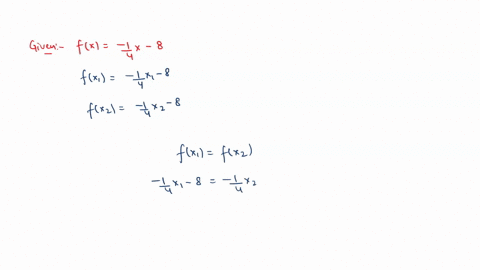 Given:- f(x) = -1/4 x - 8
f(x₁) = -1/4 x₁ - 8
f(x₂) = -1/4 x₂ - 8
f(x₁) = f(x₂)
-1/4 x₁ - 8 = -1/4 x₂